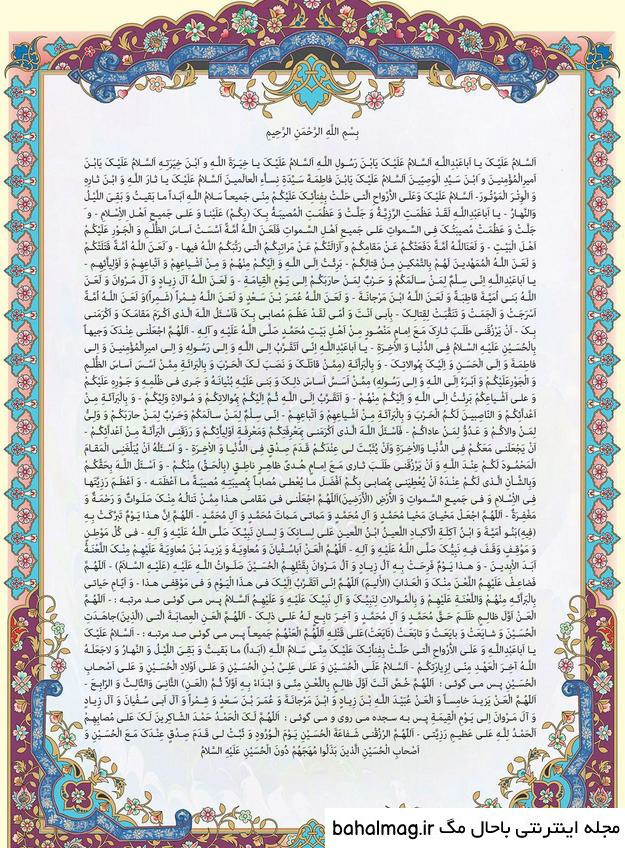 بِسْمِ اللَّهِ الرَّحْمَنِ الرَّحِیمِ
اَلسَّلامُ عَلَیْکَ یـا اَباعَبْدِاللَّـهِ اَلسَّلامُ عَلَیْکَ یَابْنَ رَسُولِ اللَّـهِ اَلسَّلامُ عَلَیْکَ یا خِیَرَةَ اللَّـهِ و َابْنَ خِیَرَتِهِ اَلسَّلامُ عَلَیْکَ یَابْنَ
اَمیرِالْمُؤْمِنینَ و َابْنَ سَیِّدِ الْوَصِیّینَ اَلسَّلامُ عَلَیْکَ یَابْنَ فاطِمَةَ سَیِّدَةِ نِساءِ الْعالَمینَ اَلسَّلامُ عَلَیْکَ یا ثارَ اللَّـهِ وَ ابْنَ ثارِهِ
وَ الْوِتْرَ الْمَوْتُورَ- اَلسَّلامُ عَلَیْکَ وَعَلَی الْأَرْواحِ الَّتی حَلَّتْ بِفِنائِکَ عَلَیْکُمْ مِنّی جَمیعاً سَلامُ اللَّـهِ اَبَداً ما بَقیتُ وَ بَقِیَ اللَّیْلُ
وَالنَّهارُ - یا اَباعَبْدِاللَّـهِ لَقَدْ عَظُمَتِ الرَّزِیَّةُ وَ جَلَّتْ وَ عَظُمَتِ الْمُصیبَةُ بِکَ (بِکُمْ) عَلَیْنا وَ عَلی جَمیعِ اَهْلِ الْاِسْلامِ - و َ
جَلَّتْ وَ عَظُمَتْ مُصیبَتُکَ فِی السَّمواتِ عَلی جَمیعِ اَهْلِ السَّمواتِ فَلَعَنَ اللَّـهُ اُمَّةً اَسَّسَتْ اَساسَ الظُّلْمِ وَ الْجَوْرِ عَلَیْکُمْ
اَهْلَ الْبَیْتِ - و َلَعَنَ‌اللَّـهُ اُمَّةً دَفَعَتْکُمْ عَنْ مَقامِکُمْ و َاَزالَتْکُمْ عَنْ مَراتِبِکُمُ الَّتی رَتَّبَکُمُ اللَّـهُ فیها - و َلَعَنَ اللَّـهُ اُمَّةً قَتَلَتْکُمْ
وَ لَعَنَ اللَّـهُ الْمُمَهِّدینَ لَهُمْ بِالتَّمْکینِ مِنْ قِتالِکُمْ - بَرِئْتُ اِلَی اللَّـهِ وَ اِلَیْکُمْ مِنْهُمْ وَ مِنْ اَشْیاعِهِمْ وَ اَتْباعِهِمْ وَ اَوْلِیائِهِم -
یا اَباعَبْدِاللَّـهِ اِنّی سِلْمٌ لِمَنْ سالَمَکُمْ وَ حَرْبٌ لِمَنْ حارَبَکُمْ اِلی یَوْمِ الْقِیامَةِ - وَ لَعَنَ اللَّـهُ آلَ زِیادٍ وَ آلَ مَرْوانَ وَ لَعَنَ
اللَّـهُ بَنی اُمَیَّةَ قاطِبَةً وَ لَعَنَ اللَّـهُ ابْنَ مَرْجانَةَ - وَ لَعَنَ اللَّـهُ عُمَرَ بْنَ سَعْدٍ وَ لَعَنَ اللَّـهُ شِمْراً (شَمِراً)وَ لَعَنَ اللَّـهُ اُمَّةً
اَسْرَجَتْ وَ اَلْجَمَتْ وَ تَنَقَّبَتْ لِقِتالِکَ - بِاَبی اَنْتَ وَ اُمّی لَقَدْ عَظُمَ مُصابی بِکَ فَاَسْئَلُ اللَّـهَ الَّذی اَکْرَمَ مَقامَکَ وَ اَکْرَمَنی
بِکَ - اَنْ یَرْزُقَنی طَلَبَ ثارِکَ مَعَ اِمامٍ مَنْصُورٍ مِنْ اَهْلِ بَیْتِ مُحَمَّدٍ صَلَّی اللَّـهُ عَلَیْهِ وَ آلِهِ - اَللّـهُمَّ اجْعَلْنی عِنْدَکَ وَجیهاً
بِالْحُسَیْنِ عَلَیْهِ السَّلامُ فِی الدُّنْیا وَ الْاخِرَةِ - یا اَباعَبْدِاللَّـهِ اِنّی اَتَقَرَّبُ اِلَی اللَّـهِ وَ اِلی رَسُولِهِ وَ اِلی امیرِالْمُؤْمِنینَ وَ اِلی
فاطِمَةَ وَ اِلَی الْحَسَنِ وَ اِلَیْکَ بِمُوالاتِکَ - وَ بِالْبَرائَةِ (مِمَّنْ قاتَلَکَ وَ نَصَبَ لَکَ الْحَرْبَ وَ بِالْبَرائَةِ مِمَّنْ اَسَّسَ اَساسَ الظُّلْمِ
وَ الْجَوْرِعَلَیْکُمْ وَ اَبْرَءُ اِلَی اللَّـهِ وَ اِلی رَسُولِهِ) مِمَّنْ اَسَّسَ اَساسَ ذلِکَ وَ بَنی عَلَیْهِ بُنْیانَهُ وَ جَری فی ظُلْمِهِ وَ جَوْرِهِ عَلَیْکُمْ
وَ علی اَشْیاعِکُمْ بَرِئْتُ اِلَی اللَّـهِ وَ اِلَیْکُمْ مِنْهُمْ - وَ اَتَقَرَّبُ اِلَی اللَّـهِ ثُمَّ اِلَیْکُمْ بِمُوالاتِکُمْ وَ مُوالاةِ وَلِیِّکُمْ - وَ بِالْبَرائَةِ مِنْ
اَعْدائِکُمْ وَ النّاصِبینَ لَکُمُ الْحَرْبَ وَ بِالْبَرائَةِ مِنْ اَشْیاعِهِمْ وَ اَتْباعِهِمْ - اِنّی سِلْمٌ لِمَنْ سالَمَکُمْ وَحَرْبٌ لِمَنْ حارَبَکُمْ وَ وَلِیٌّ
لِمَنْ والاکُمْ وَ عَدُوٌّ لِمَنْ عاداکُمْ - فَاَسْئَلُ اللَّـهَ الَّذی اَکْرَمَنی بِمَعْرِفَتِکُمْ وَمَعْرِفَةِ اَوْلِیائِکُمْ وَ رَزَقَنِی الْبَرائَةَ مِنْ اَعْدائِکُمْ -
اَنْ یَجْعَلَنی مَعَکُمْ فِی الدُّنْیا وَالْاخِرَةِ وَاَنْ یُثَبِّتَ لی عِنْدَکُمْ قَدَمَ صِدْقٍ فِی الدُّنْیا وَ الْاخِرَةِ - وَ اَسْئَلُهُ اَنْ یُبَلِّغَنِی الْمَقامَ
الْمَحْمُودَ لَکُمْ عِنْدَ اللَّـهِ وَ اَنْ یَرْزُقَنی طَلَبَ ثاری مَعَ اِمامٍ هُـدیً ظاهِـرٍ ناطِـقٍ (بِالْحَقِّ) مِنْکُمْ - وَ اَسْئَلُ اللَّـهَ بِحَقِّکُمْ
وَبِالشَّأْنِ الَّذی لَکُمْ عِنْدَهُ اَنْ یُعْطِیَنی بِمُصابی بِکُمْ اَفْضَلَ ما یُعْطی مُصاباً بِمُصیبَتِهِ مُصیبَةً ما اَعْظَمَه - وَ اَعْظَمَ رَزِیَّتَها
فِی الْاِسْلامِ وَ فی جَمیعِ السَّمواتِ وَ الْأَرْضِ (الأَرَضینَ)اَللّـهُمَّ اجْعَلْنی فی مَقامی هذا مِمَّنْ تَنالُهُ مِنْکَ صَلَواتٌ وَ رَحْمَةٌ وَ
مَغْفِرَةٌ - اَللّـهُمَّ اجْعَلْ مَحْیایَ مَحْیا مُحَمَّدٍ وَ آلِ مُحَمَّدٍ وَ مَماتی مَماتَ مُحَمَّدٍ وَ آلِ مُحَمَّدٍ - اَللّـهُمَّ اِنَّ هذا یَوْمٌ تَبَرَّکَتْ بِهِ
(فیهِ)بَنُو اُمَیَّةَ وَ ابْنُ آکِلَةِ الْاَکْبادِ اللَّعینُ ابْنُ اللَّعینِ عَلی لِسانِکَ وَ لِسانِ نَبِیِّکَ صَلَّی اللَّـهُ عَلَیْهِ وَ آلِهِ - فی کُلِّ مَوْطِنٍ
وَ مَوْقِفٍ وَقَفَ فیهِ نَبِیُّکَ صَلَّی اللَّـهُ عَلَیْهِ وَ آلِهِ - اَللّـهُمَّ الْعَنْ اَباسُفْیانَ وَ مُعاوِیَةَ وَ یَزیدَ بْنَ مُعاوِیَةَ عَلَیْهِمْ مِنْکَ اللَّعْنَةُ
اَبَدَ الْابِدینَ - وَ هذا یَوْمٌ فَرِحَتْ بِهِ آلُ زِیادٍ وَ آلُ مَرْوانَ بِقَتْلِهِمُ الْحُسَیْنَ صَلَواتُ اللَّـهِ عَلَیْهِ (عَلَیْهِ السَّلامُ) - اَللّـهُمَّ
فَضاعِفْ عَلَیْهِمُ اللَّعْنَ مِنْکَ وَ الْعَذابَ (الْاَلیمَ) اَللّـهُمَّ اِنّی اَتَقَرَّبُ اِلَیْکَ فی هذَا الْیَوْمِ وَ فی مَوْقِفی هذا - وَ اَیّامِ حَیاتی
بِالْبَرائَهِ مِنْهُمْ وَاللَّعْنَةِ عَلَیْهِمْ وَ بِالْمُوالاتِ لِنَبِیِّکَ وَ آلِ نَبِیِّکَ عَلَیْهِ وَ عَلَیْهِمُ السَّلامُ پس می گوئی صد مرتبه : - اَللّـهُمَّ
الْعَنْ اَوَّلَ ظالِمٍ ظَلَمَ حَقَّ مُحَمَّدٍ وَ آلِ مُحَمَّدٍ وَ آخِرَ تابِعٍ لَهُ عَلی ذلِکَ - اَللّـهُمَّ الْعَنِ الْعِصابَةَ الَّتی (الَّذینَ)جاهَدَتِ
الْحُسَیْنَ وَ شایَعَتْ وَ بایَعَتْ وَ تابَعَتْ (تایَعَتْ)عَلی قَتْلِهِ اَللّـهُمَّ الْعَنْهُمْ جَمیعاً پس می گوئی صد مرتبه : - اَلسَّلامُ عَلَیْکَ
یا اَباعَبْدِاللَّـهِ وَ عَلَی الْأَرْواحِ الَّتی حَلَّتْ بِفِنائِکَ عَلَیْکَ مِنّی سَلامُ اللَّـهِ (اَبَداً) ما بَقیتُ وَ بَقِیَ اللَّیْلُ وَ النَّهارُ وَ لاجَعَلَهُ
اللَّـهُ آخِرَ الْعَهْدِ مِنّی لِزِیارَتِکُمْ - اَلسَّلامُ عَلَی الْحُسَیْنِ وَ عَلی عَلِیِّ بْنِ الْحُسَیْنِ وَ عَلی اَوْلادِ الْحُسَیْنِ وَ عَلی اَصْحابِ
الْحُسَیْنِ پس می گوئی : اَللّـهُمَّ خُصَّ اَنْتَ اَوَّلَ ظالِمٍ بِاللَّعْنِ مِنّی وَ ابْدَاءْ بِهِ اَوَّلاً ثُمَّ (الْعَنِ) الثّانِیَ وَالثّالِثَ وَ الرّابِعَ -
اَللّـهُمَّ الْعَنْ یَزیدَ خامِساً وَ الْعَنْ عُبَیْدَ اللَّـهِ بْنَ زِیادٍ وَ ابْنَ مَرْجانَةَ وَ عُمَرَ بْنَ سَعْدٍ وَ شِمْراً وَ آلَ اَبی سُفْیانَ وَ آلَ زِیادٍ
وَ آلَ مَـرْوانَ اِلـی یَـوْمِ الْقِیمَةِ پس به سـجده می روی و می گوئی : اَللّـهُمَّ لَـکَ الْحَمْدُ حَمْدَ الشّاکِرینَ لَکَ عَلـی مُصابِهِمْ
اَلْحَمْدُ لِلَّهِ عَلی عَظیمِ رَزِیَّتی - اَللّـهُمَّ ارْزُقْنی شَفاعَةَ الْحُسَیْنِ یَوْمَ الْـوُرُودِ وَ ثَبِّتْ لی قَـدَمَ صِدْقٍ عِنْدَکَ مَعَ الْحُسَیْنِ وَ
اَصْحابِ الْحُسَیْنِ الَّذینَ بَذَلُوا مُهَجَهُمْ دُونَ الْحُسَیْنِ عَلَیْهِ السَّلامُ
مجله اینترنتی باحال مگ bahalmag.ir